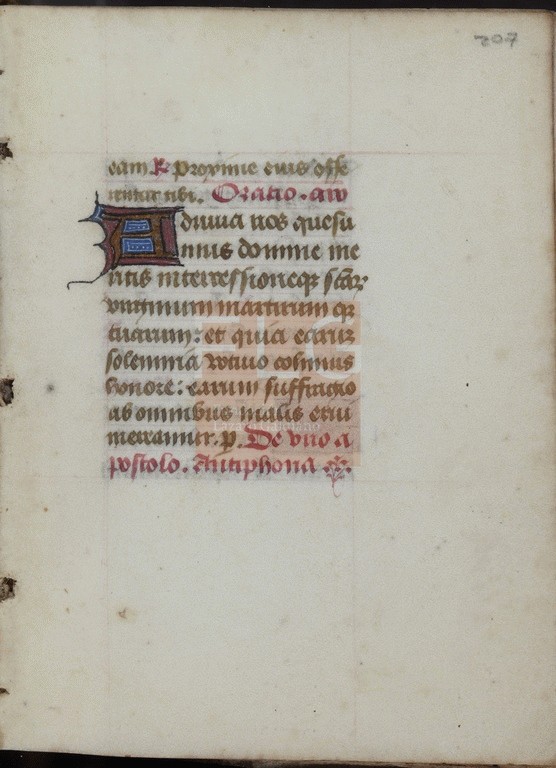 207
eam ℟ Proxime eius offe
rentur tibi. Oratio.
Adiuua nos quesu
mus domine me
ritis intercessioneqz sctar
virginum martirum qz
tuarum: et quia earuz
solemnia votiuo colimus
honore: earum suffragio
ab omnibus malis erua
mur. p. De vno a
postolo. Antiphona
Lázaro Galdiano